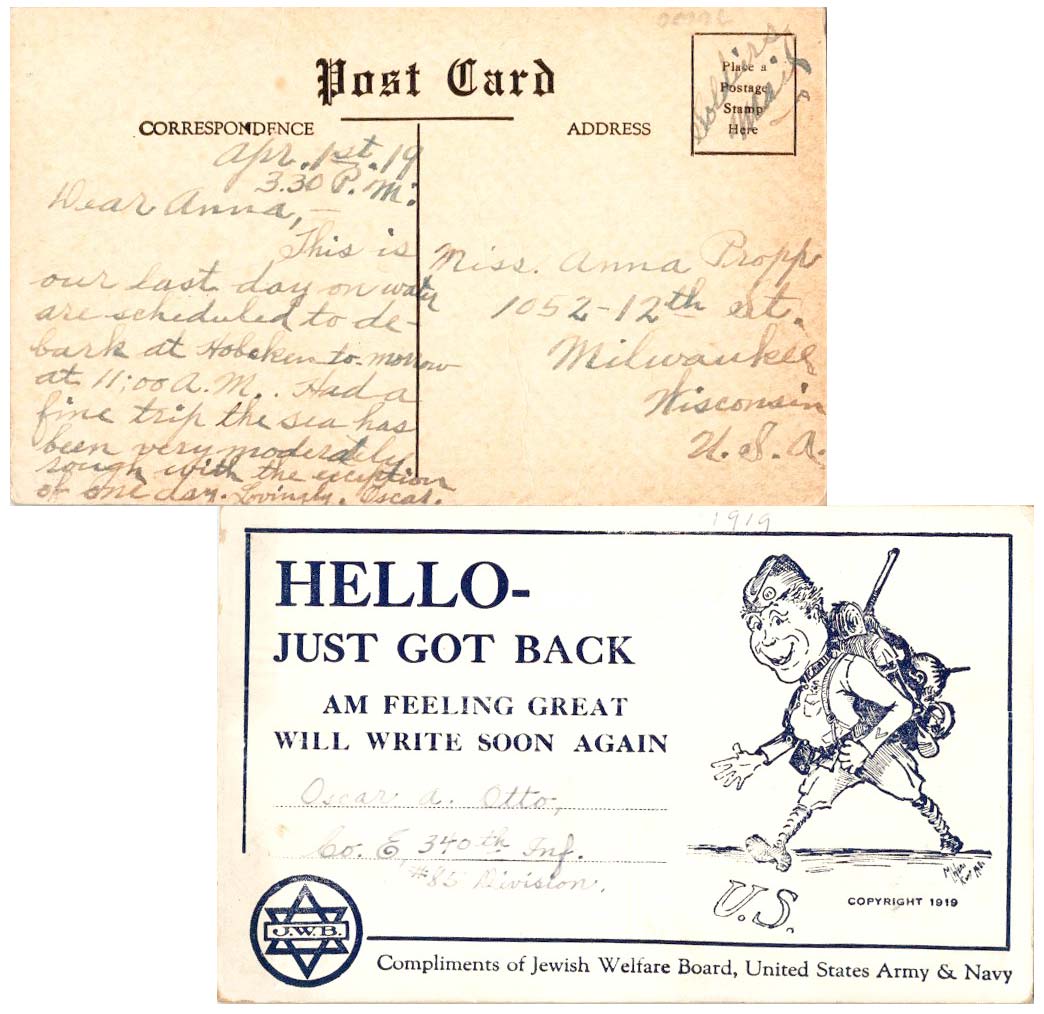 Post Card
CORRESPONDENCE
ADDRESS
Place a
Postage
Stamp
Here
Soldiers
Mail
Apr. 1st. 19
3.30 P. M.
Dear Anna, —
This is
our last day on water
are scheduled to de-
bark at Hoboken to-morrow
at 11:00 A.M.. Had a
fine trip the sea has
been very moderately
rough with the exception
of one day. Lovingly. Oscar.
Miss. Anna Propp
1052-12th st.
Milwaukee
Wisconsin
U. S. A.
1919
HELLO-
JUST GOT BACK
AM FEELING GREAT
WILL WRITE SOON AGAIN
Oscar A. Otto,
Co. E, 340th Inf.
#85 Division.
U.S.
COPYRIGHT 1919
J.W.B.
Compliments of Jewish Welfare Board, United States Army & Navy